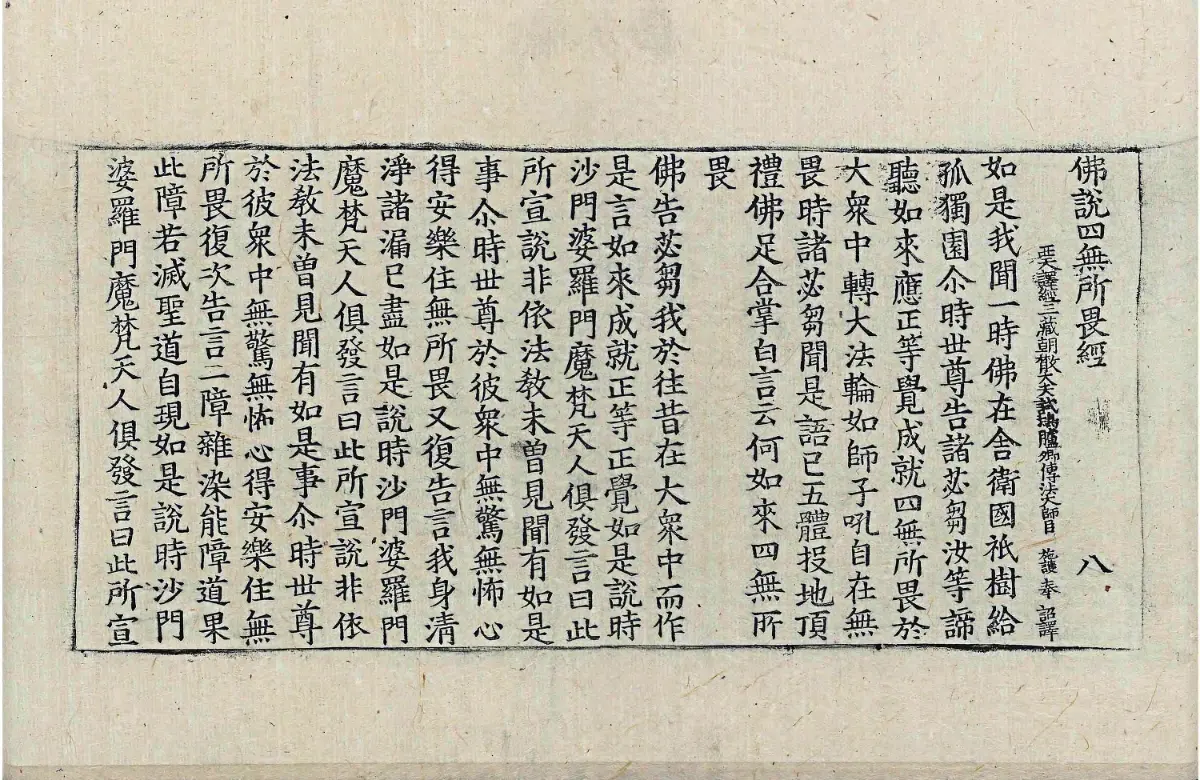 佛說四無所畏經 八
西天譯經三藏朝散大夫試鴻臚卿傳法大師臣 施護 奉 詔譯
如是我聞一時佛在舍衛國祇樹給
孤獨園尒時世尊告諸苾芻汝等諦
聽如來應正等覺成就四無所畏於
大衆中轉大法輪如師子吼自在無
畏時諸苾芻聞是語已五體投地頂
禮佛足合掌白言云何如來四無所
畏
佛告苾芻我於往昔在大衆中而作
是言如來成就正等正覺如是說時
沙門婆羅門魔梵天人俱發言曰此
所宣說非依法教未曽見聞有如是
事尒時世尊於彼衆中無驚無怖心
得安樂住無所畏又復告言我身清
淨諸漏已盡如是說時沙門婆羅門
魔梵天人俱發言曰此所宣說非依
法教未曽見聞有如是事尒時世尊
於彼衆中無驚無怖心得安樂住無
所畏復次告言二障雜染能障道果
此障若滅聖道自現如是說時沙門
婆羅門魔梵天人俱發言曰此所宣